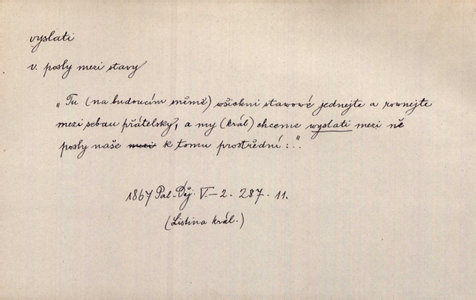 vyslati
v. posly mezi stavy
„Tu (na budoucím sněmě) všickni stavové jednejte a rovnejte
mezi sebau přátelsky, a my (král) chceme wyslati mezi ně
posly naše mezi k tomu prostřední:“.
1867 Pal. Děj. V–2. 287. 11.
(Listina král.)